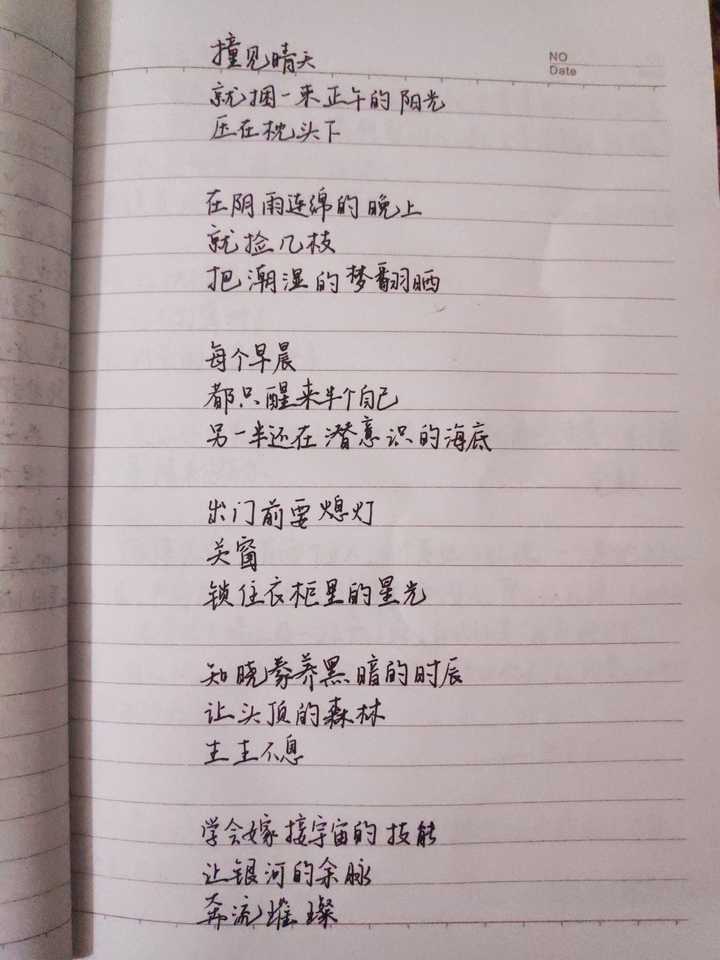 NO
Date
撞见晴天
就捆一束正午的阳光
压在枕头下
在阴雨连绵的晚上
就捡几枝
把潮湿的梦翻晒
每个早晨
都只醒来半个自己
另一半还在潜意识的海底
出门前要熄灯
关窗
锁住衣柜里的星光
知晓豢养黑暗的时辰
让头顶的森林
生生不息
学会嫁接宇宙的技能
让银河的余脉
奔流璀璨